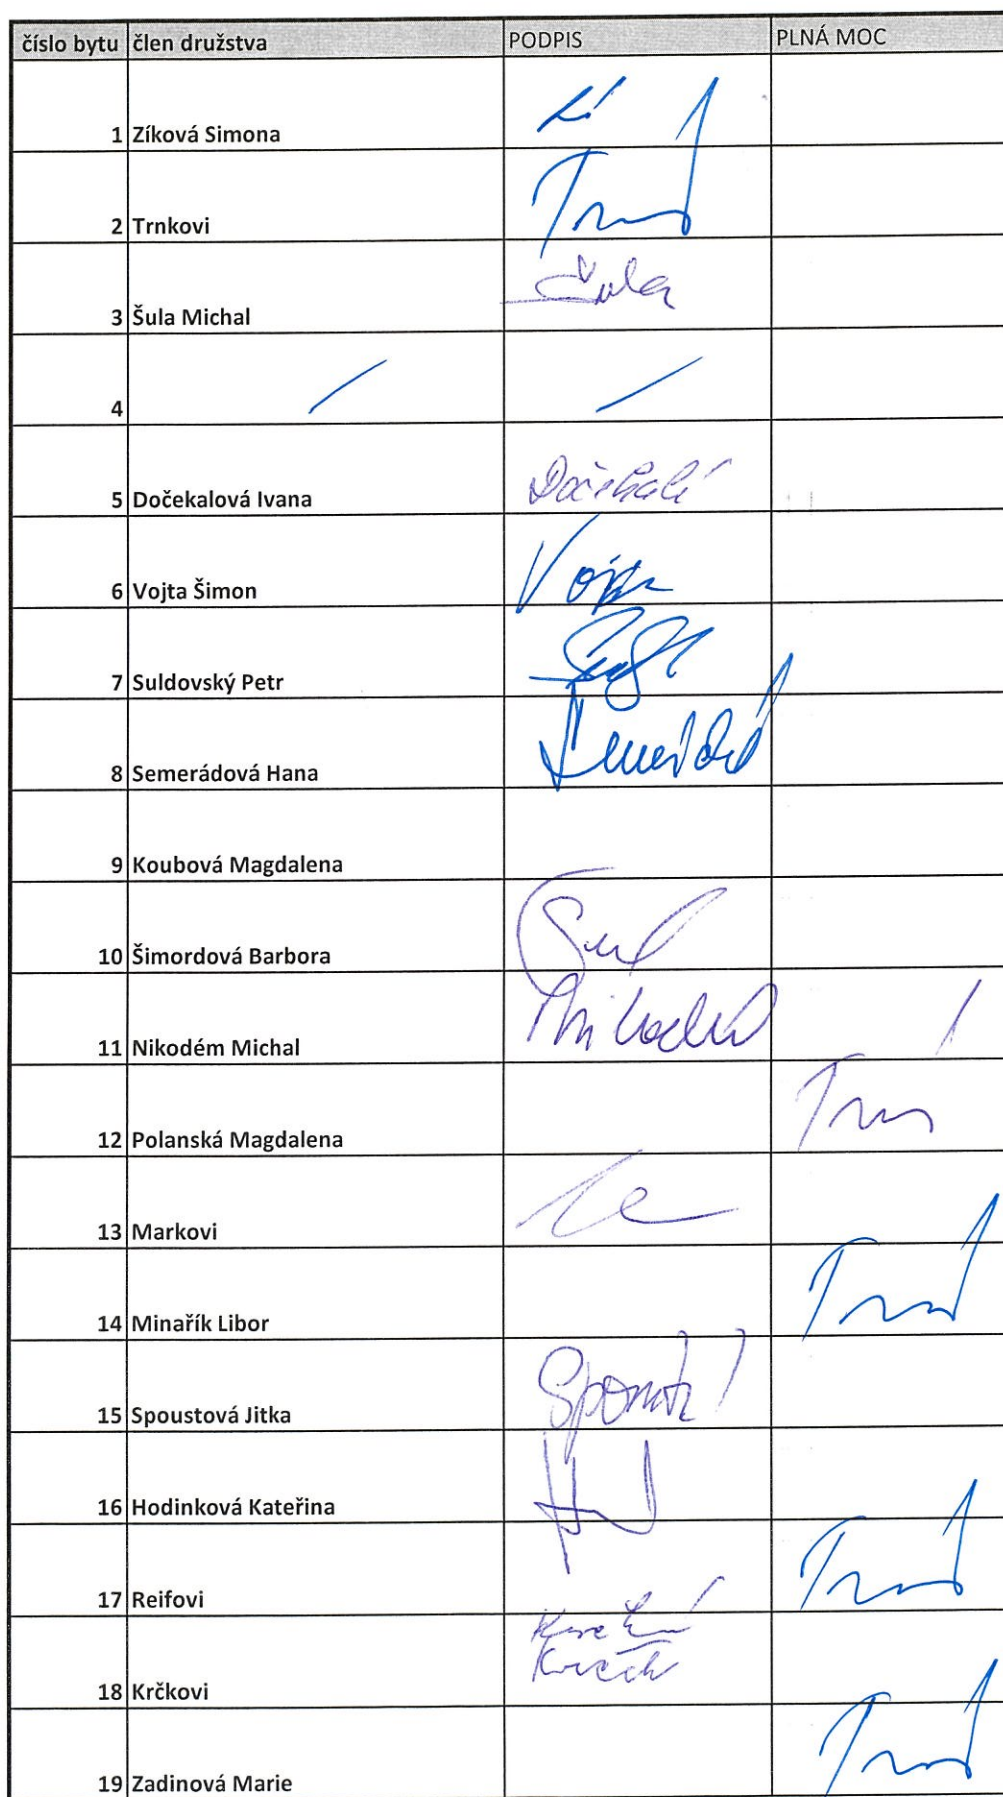 číslo bytu člen družstva PODPIS PLNÁ MOC
1 Zíková Simona
2 Trnkovi
3 Šula Michal Šula
4
5 Dočekalová Ivana
6 Vojta Šimon Vojta
7 Suldovský Petr
8 Semerádová Hana
9 Koubová Magdalena
10 Šimordová Barbora
11 Nikodém Michal
12 Polanská Magdalena
13 Markovi
14 Minařík Libor
15 Spoustová Jitka
16 Hodinková Kateřina
17 Reifovi
18 Krčkovi
19 Zadinová Marie